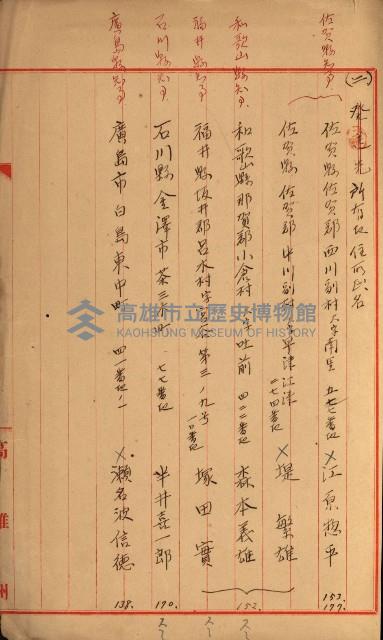 佐賀縣知事
(二) 發送先所有者住所氏名
佐賀縣佐賀郡西川副村大字南里 五七七番地 ×江原惣平 153. 177.
佐賀縣佐賀郡中川副村大字早津江津 二七四番地 ×堤 繁雄
和歌山縣知事
和歌山縣那賀郡小倉村大字吐前 四二二番地 森本義雄 152.
福井縣知事
福井縣坂井郡 第三ノ九号 一〇番地 塚田實
石川縣知事
石川縣金澤市茶 町 七七番地 半井喜一郎 170.
廣島縣知事
廣島市白島東中町 四一番地ノ一 ×瀬名波信德 138.
高雄市立歷史博物館
KAOHSIUNG MUSEUM OF HISTORY
高雄州